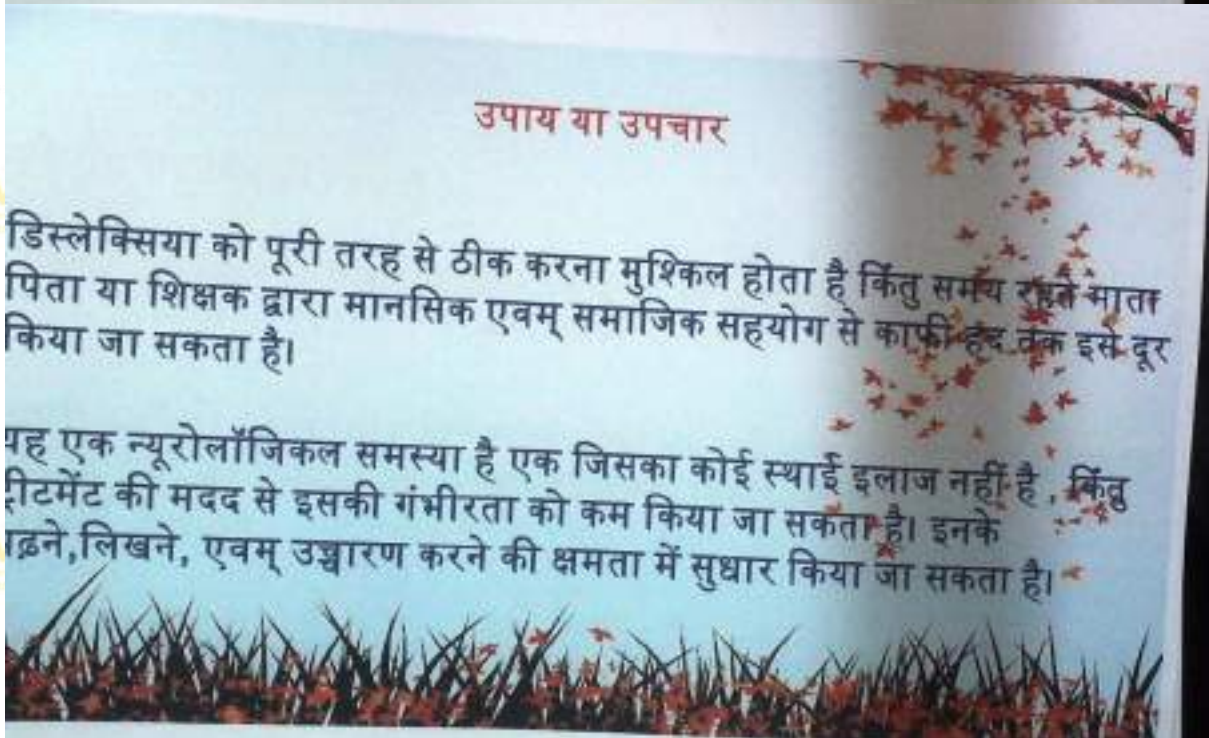 उपाय या उपचार
डिस्लेक्सिया को पूरी तरह से ठीक करना मुश्किल होता है किंतु समय रहते माता
पिता या शिक्षक द्वारा मानसिक एवम् समाजिक सहयोग से काफी हद तक इसे दूर
किया जा सकता है।
यह एक न्यूरोलॉजिकल समस्या है एक जिसका कोई स्थाई इलाज नहीं है , किंतु
ट्रीटमेंट की मदद से इसकी गंभीरता को कम किया जा सकता है। इनके
पढ़ने,लिखने, एवम् उच्चारण करने की क्षमता में सुधार किया जा सकता है।